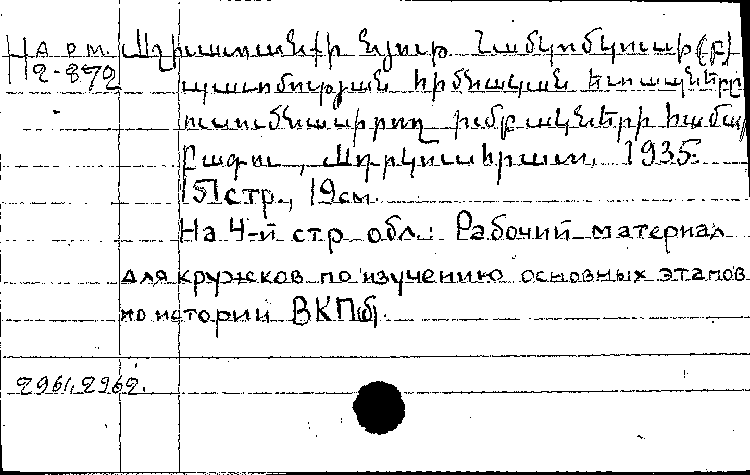 Н арм.
2-872
Աշխատանքի նյութ Համկոմկուսի(բ)
պատմության հիմնական ետապները
ուսումնասիրող խմբակների համար
Բագու, Ադրկուսհրատ, 1935.
151стр., 19см.
На 4-й стр обл.: Рабочий материал
для кружков по изучению основных этапов
по истории ВКП(б).
2961, 2962.